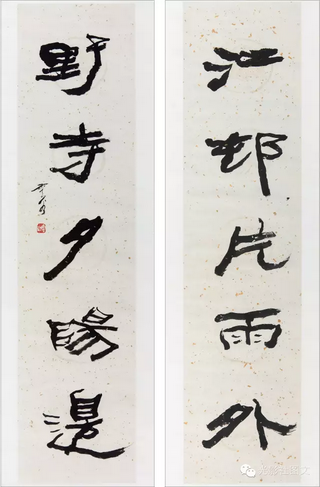 江邨片雨外
野寺夕陽邊